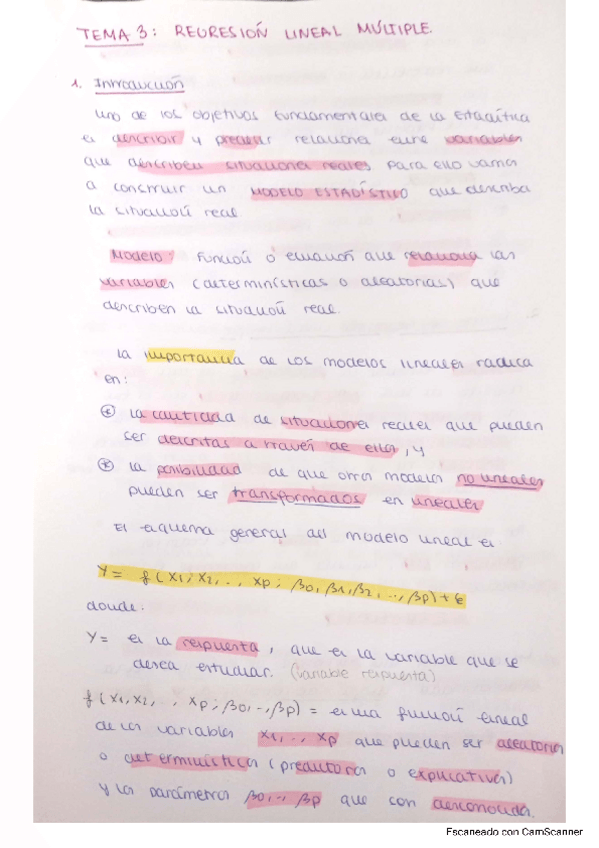 TEMA 3: REGRESIÓN LINEAL MÚLTIPLE.
1. Introducción
Uno de los objetivos fundamentales de la estadística
es describir y predecir relaciones entre variables
que describen situaciones reales para ello vamos
a construir un MODELO ESTADÍSTICO que describa
la situación real
Modelo: Función o ecuación que relaciona las
variables (determinísticas o aleatorias) que
describen la situación real.
La importancia de los modelos lineales radica
en:
* La cantidad de situaciones reales que pueden
ser descritas a través de ellos, y
* la posibilidad de que otros modelos no lineales
pueden ser transformados en lineales
El esquema general del modelo lineal es
Y = f(x1; x2, .., xp; β0, β1, β2, .., βp) + ε
donde:
Y = es la respuesta, que es la variable que se
desea estudiar. (variable respuesta)
f(x1, x2, .., xp; β0, .., βp) = es una función lineal
de las variables x1, .., xp que pueden ser aleatorias
o determinísticas (predictoras o explicativas)
y los parámetros β0, .., βp que son desconocidos.
Escaneado con CamScanner